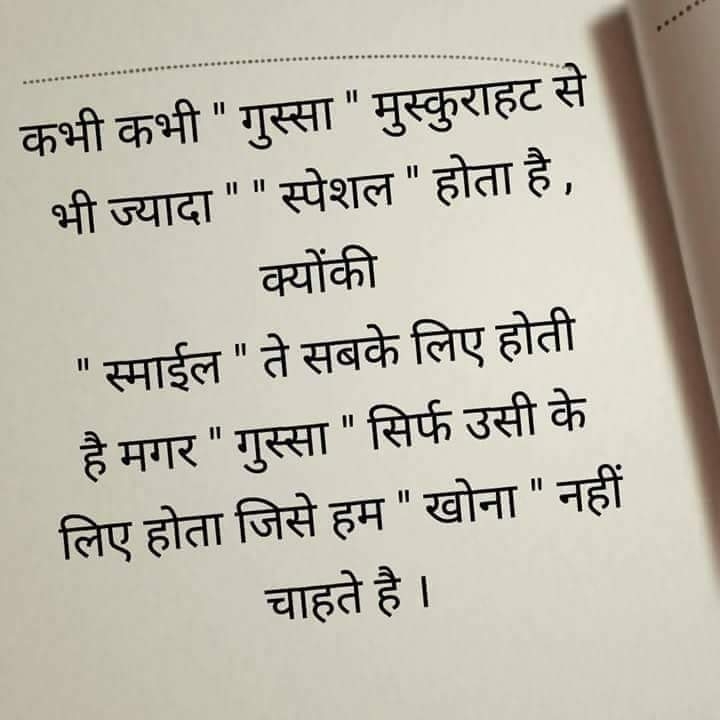 कभी कभी " गुस्सा " मुस्कुराहट से
भी ज्यादा " " स्पेशल " होता है ,
क्योंकी
" स्माईल " ते सबके लिए होती
है मगर " गुस्सा " सिर्फ उसी के
लिए होता जिसे हम " खोना " नहीं
चाहते है ।